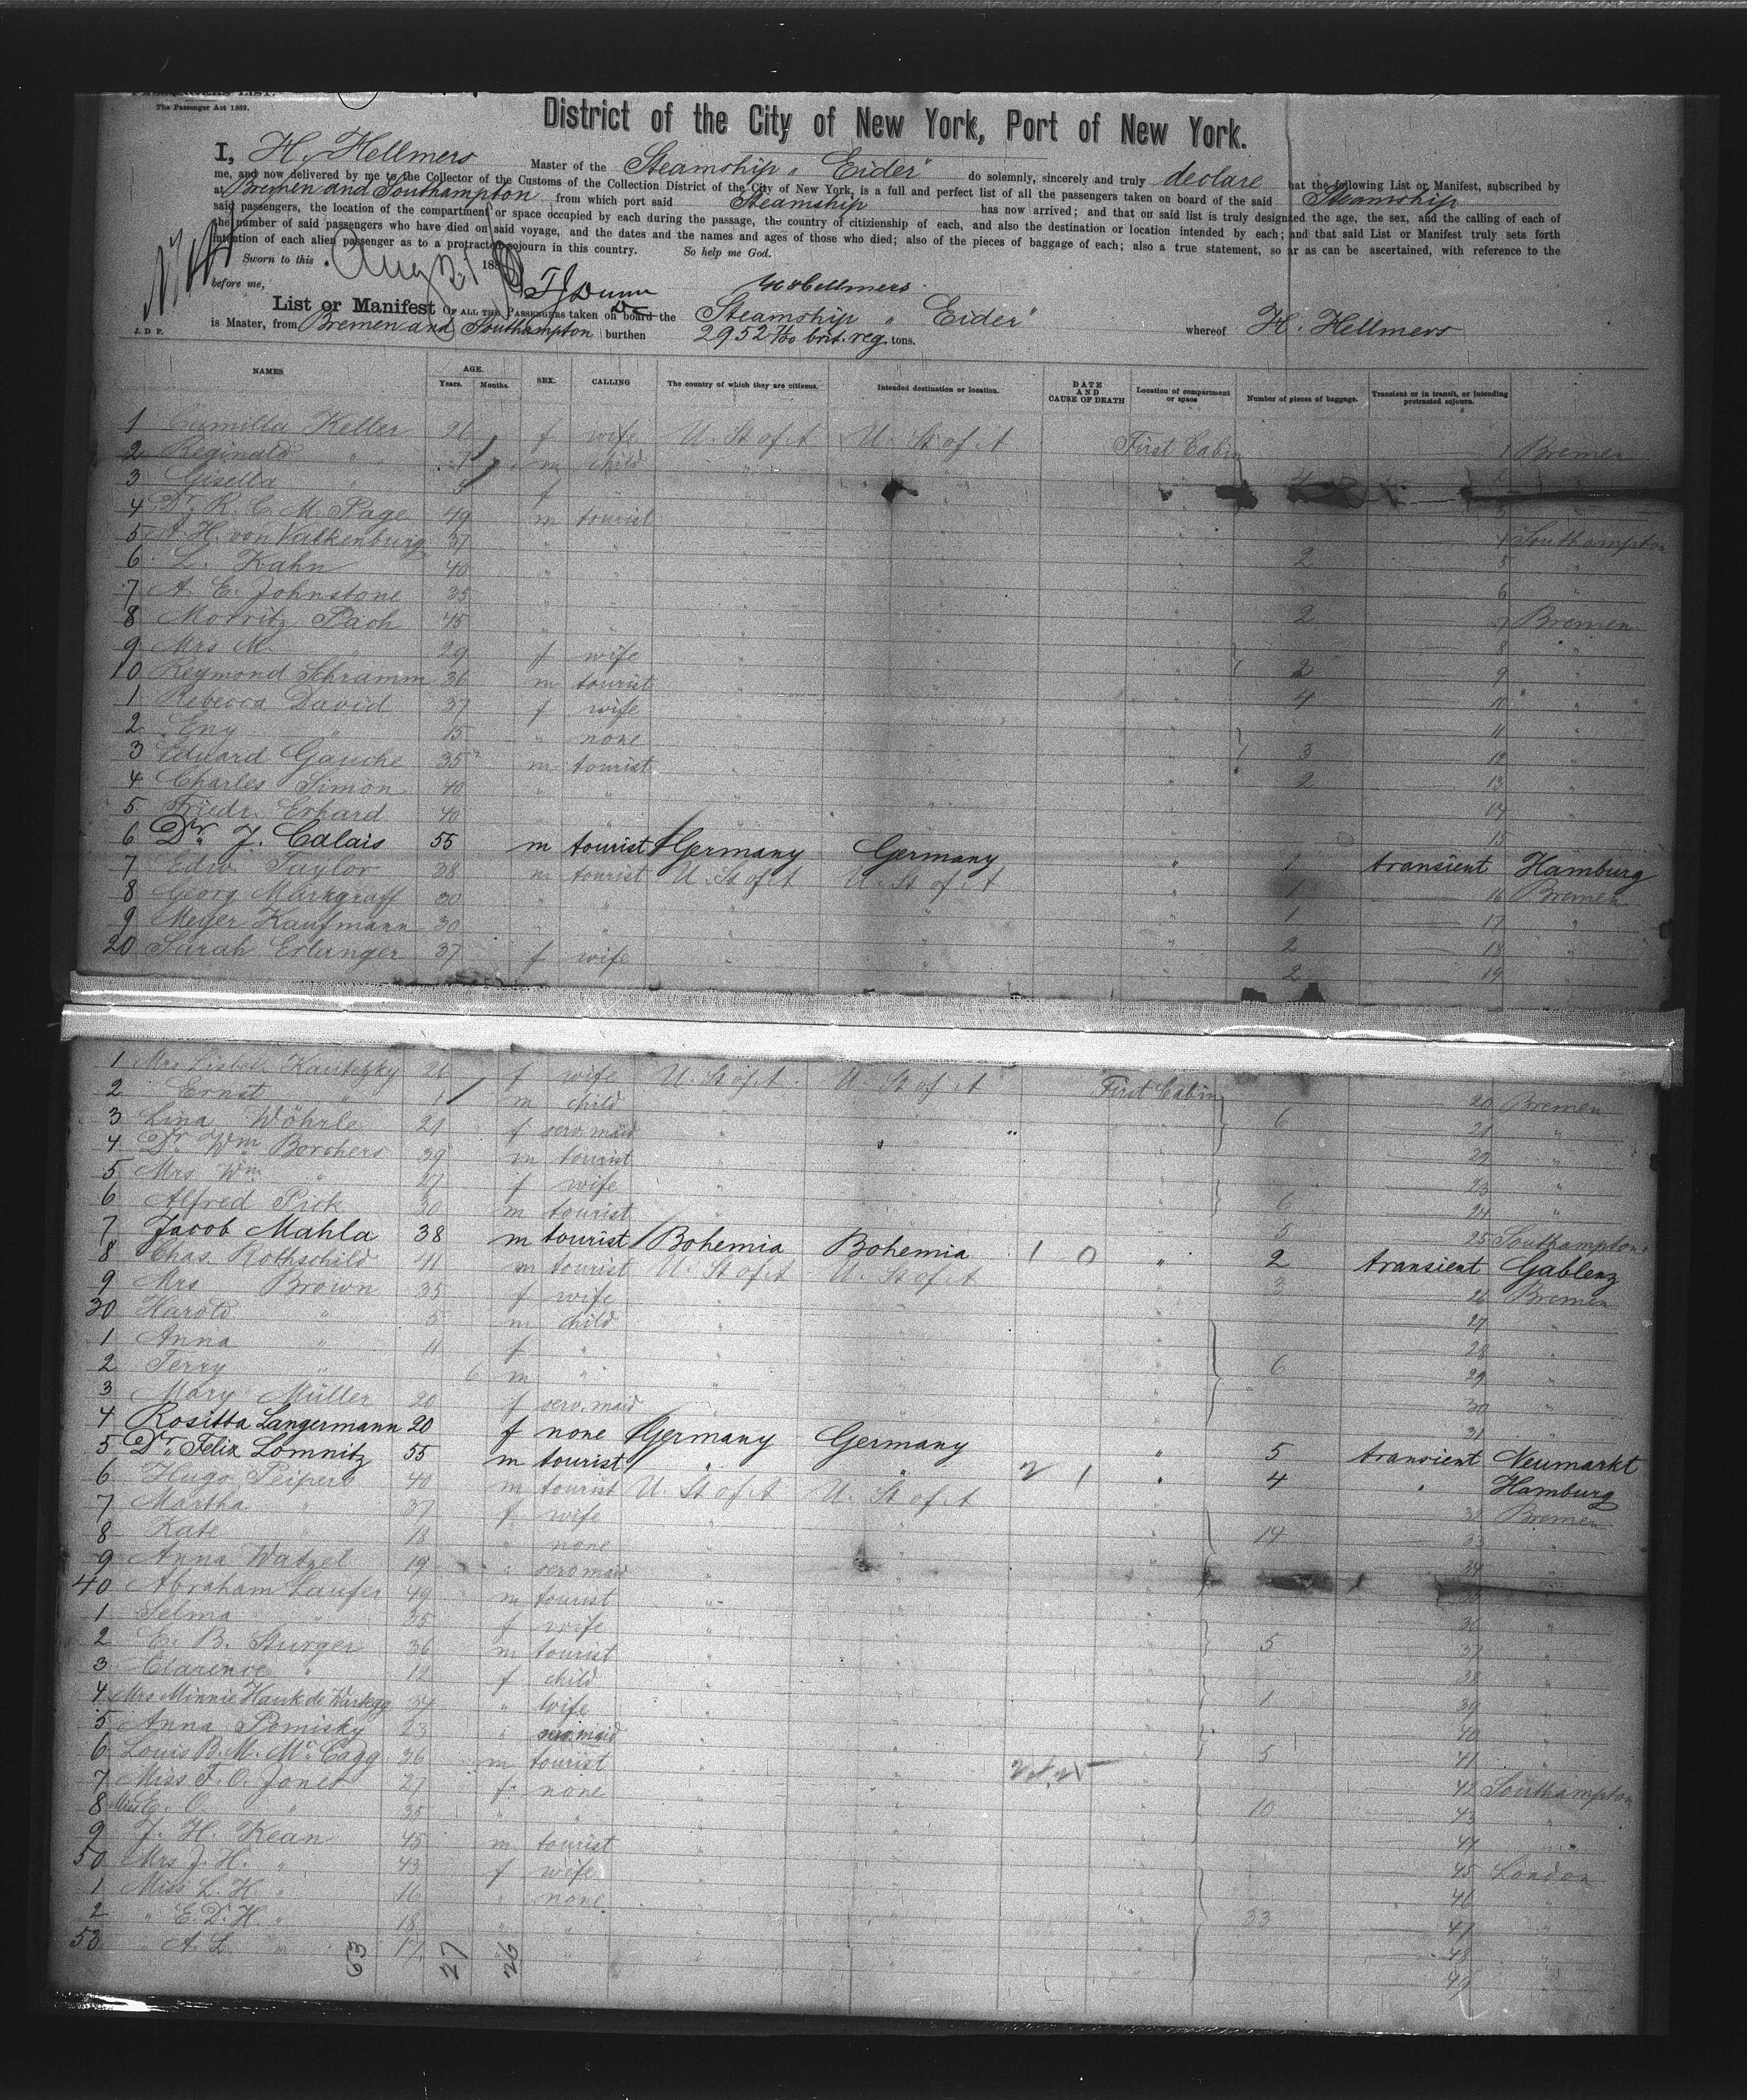 PASSENGERS LIST.
The Passenger Act 1882.
District of the City of New York, Port of New York.
I, H. Hellmers Master of the Steamship „Eider" do solemnly, sincerely and truly declare that the following List or Manifest, subscribed by
me, and now delivered by me to the Collector of the Customs of the Collection District of the City of New York, is a full and perfect list of all the passengers taken on board of the said Steamship
at Bremen and Southampton from which port said Steamship has now arrived; and that on said list is truly designated the age, the sex, and the calling of each of
said passengers, the location of the compartment or space occupied by each during the passage, the country of citizienship of each, and also the destination or location intended by each; and that said List or Manifest truly sets forth
the number of said passengers who have died on said voyage, and the dates and the names and ages of those who died; also of the pieces of baggage of each; also a true statement, so far as can be ascertained, with reference to the
intention of each alien passenger as to a protracted sojourn in this country. So help me God.
Sworn to this Aug 21 188
before me, H Hellmers
List or Manifest OF ALL THE PASSENGERS taken on board the Steamship „Eider" whereof H. Hellmers
J. D. P. is Master, from Bremen and Southampton burthen 2952 brit. reg. tons.
NAMES AGE. Years. Months. SEX. CALLING The country of which they are citizens. Intended destination or location. DATE AND CAUSE OF DEATH Location of compartment or space Number of pieces of baggage. Transient or in transit, or intending protracted sojourn.
1 Camilla Keller 21 f wife U. St of A U. St of A First Cabin 1 Bremen
2 Reginald " m child " "
3 Gisella " f
4 Dr. R. C. M. Page 49 m tourist
5 A. H. von Valkenburg 37 " 4 Southampton
6 L. Kahn 40 2 5 "
7 A. E. Johnstone 35 6 "
8 Morritz Pach 45 2 7 Bremen
9 Mrs M. " 29 f wife 8 "
10 Reymond Schramm 36 m tourist 2 9 "
1 Rebecca David 37 f wife 4 10 "
2 Eny " 15 " none 11 "
3 Eduard Gauche 35 m tourist 3 12 "
4 Charles Simon 40 " " 2 13 "
5 Friedr. Erhard 40 14 "
6 Dr. J. Calais 55 m tourist Germany Germany " 1 transient Hamburg
7 Edw. Taylor 38 m tourist U. St of A U. St of A 1 16 Bremen
8 Georg Markgraff 30 " " 1 17 "
9 Meyer Kaufmann 30 " " 2 18 "
20 Sarah Erlanger 37 f wife 2 19 "
1 Mrs Lisbeth Kautzky 21 f wife U. St of A U. St of A First Cabin 20 Bremen
2 Ernst " 1 m child 6 21 "
3 Lina Wöhrle 21 f serv. maid 22 "
4 Dr. Wm Borchers 39 m tourist 23 "
5 Mrs Wm " 27 f wife 6 24 "
6 Alfred Pick 30 m tourist 5 25 Southampton
7 Jacob Mahla 38 m tourist Bohemia Bohemia 1 0 " 2 transient Gablenz
8 Chas. Rothschild 41 m tourist U. St of A U. St of A 3 26 Bremen
9 Mrs Brown 35 f wife 27 "
30 Harold " 5 m child 28 "
1 Anna " 11 f " 6 29 "
2 Terry " 6 m " 30 "
3 Mary Müller 20 f serv. maid 31 "
4 Rositta Langermann 20 f none Germany Germany " 5 transient Neumarkt
5 Dr. Felix Lomnitz 55 m tourist " " 2 1 " 4 " Hamburg
6 Hugo Peipers 40 m tourist U. St of A U. St of A 32 Bremen
7 Martha " 37 f wife 14 33 "
8 Kate " 18 " none 34 "
9 Anna Watzel 19 " serv. maid "
40 Abraham Laufer 49 m tourist 36 "
1 Selma " 35 f wife 5 37 "
2 E. B. Sturger 36 m tourist 38 "
3 Clarence " 12 f child 1 39 "
4 Mrs Minnie Hauk de Wartegg 34 " wife 40 "
5 Anna Pomisky 23 " serv. maid 5 41 "
6 Louis B. M. McCagg 36 m tourist 42 Southampton
7 Miss F. O. Jones 27 f none 10 43 "
8 Miss E. O. " 35 " " 44 "
9 J. H. Kean 45 m tourist 45 London
50 Mrs J. H. " 43 f wife 46 "
1 Miss L. H. " 16 " none 33 47 "
2 " E. D. H. " 18 " " 48 "
53 " A. L. " 17 " " 49 "
27 26